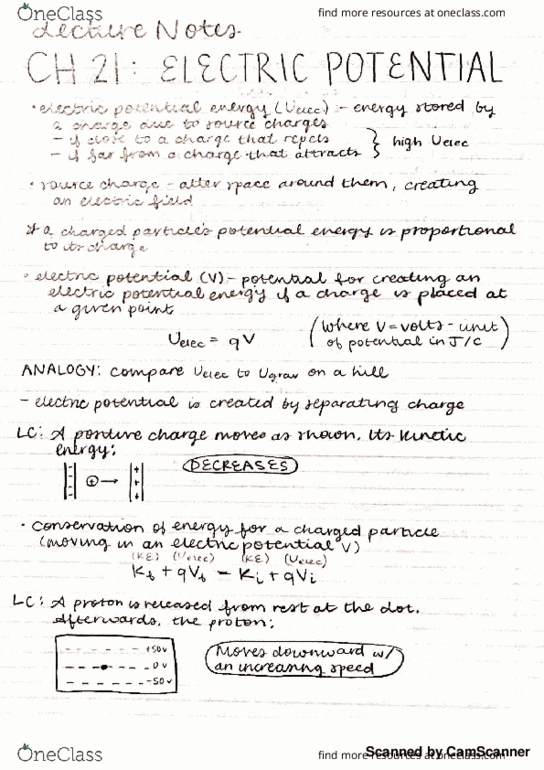 OneClass
find more resources at oneclass.com
Lecture Notes
CH 21: ELECTRIC POTENTIAL
· electric potential energy (Uelec) - energy stored by
a charge due to source charges
- if close to a charge that repels
- if far from a charge that attracts } high Uelec
· source charge - alter space around them, creating
an electric field
* a charged particle's potential energy is proportional
to its charge
· electric potential (V) - potential for creating an
electric potential energy if a charge is placed at
a given point
Uelec = qV (where V = volts - unit
of potential in J/C)
ANALOGY: compare Uelec to Ugrav on a hill
- electric potential is created by separating charge
LC: A positive charge moves as shown. Its kinetic
energy:
DECREASES
· conservation of energy for a charged particle
(moving in an electric potential V)
(KE) (Uelec) (KE) (Uelec)
Kf + qVf = Ki + qVi
LC: A proton is released from rest at the dot.
Afterwards, the proton:
+50v
0v
-50v
Moves downward w/
an increasing speed
OneClass
find more resources at oneclass.com
Scanned by CamScanner